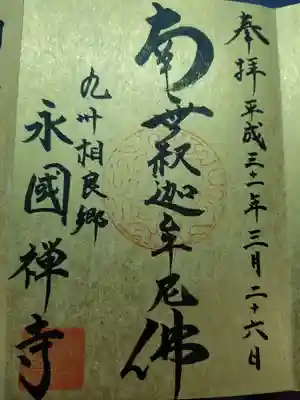 奉拝平成三十一年三月二十六日
南無釈迦牟尼佛
九州相良郷
永國禅寺